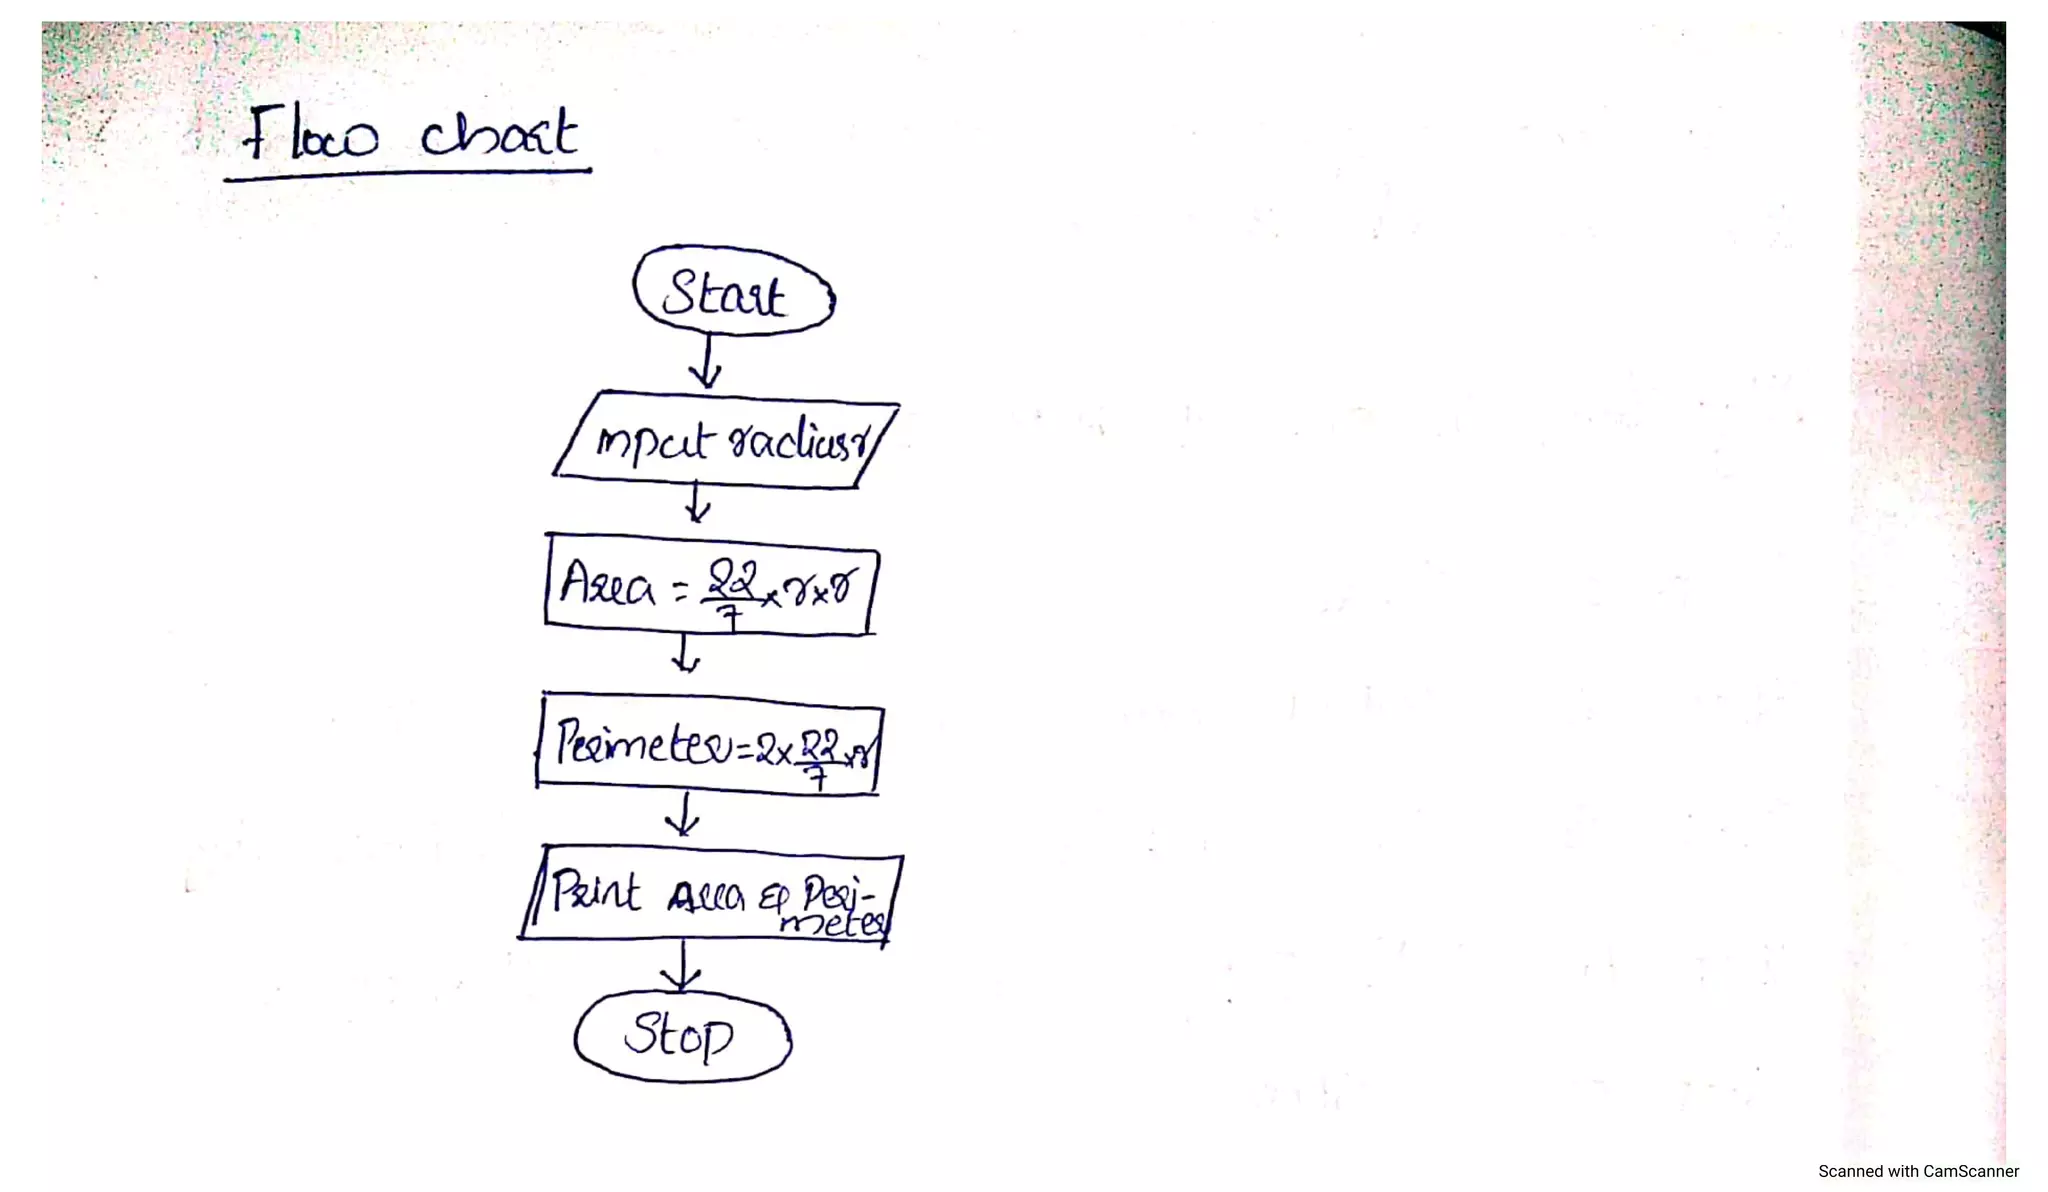 Flow chart
Start
Input radius r
Area = 22/7 × r × r
Perimeter = 2 × 22/7 × r
Print Area & Peri-
meter
Stop
Scanned with CamScanner